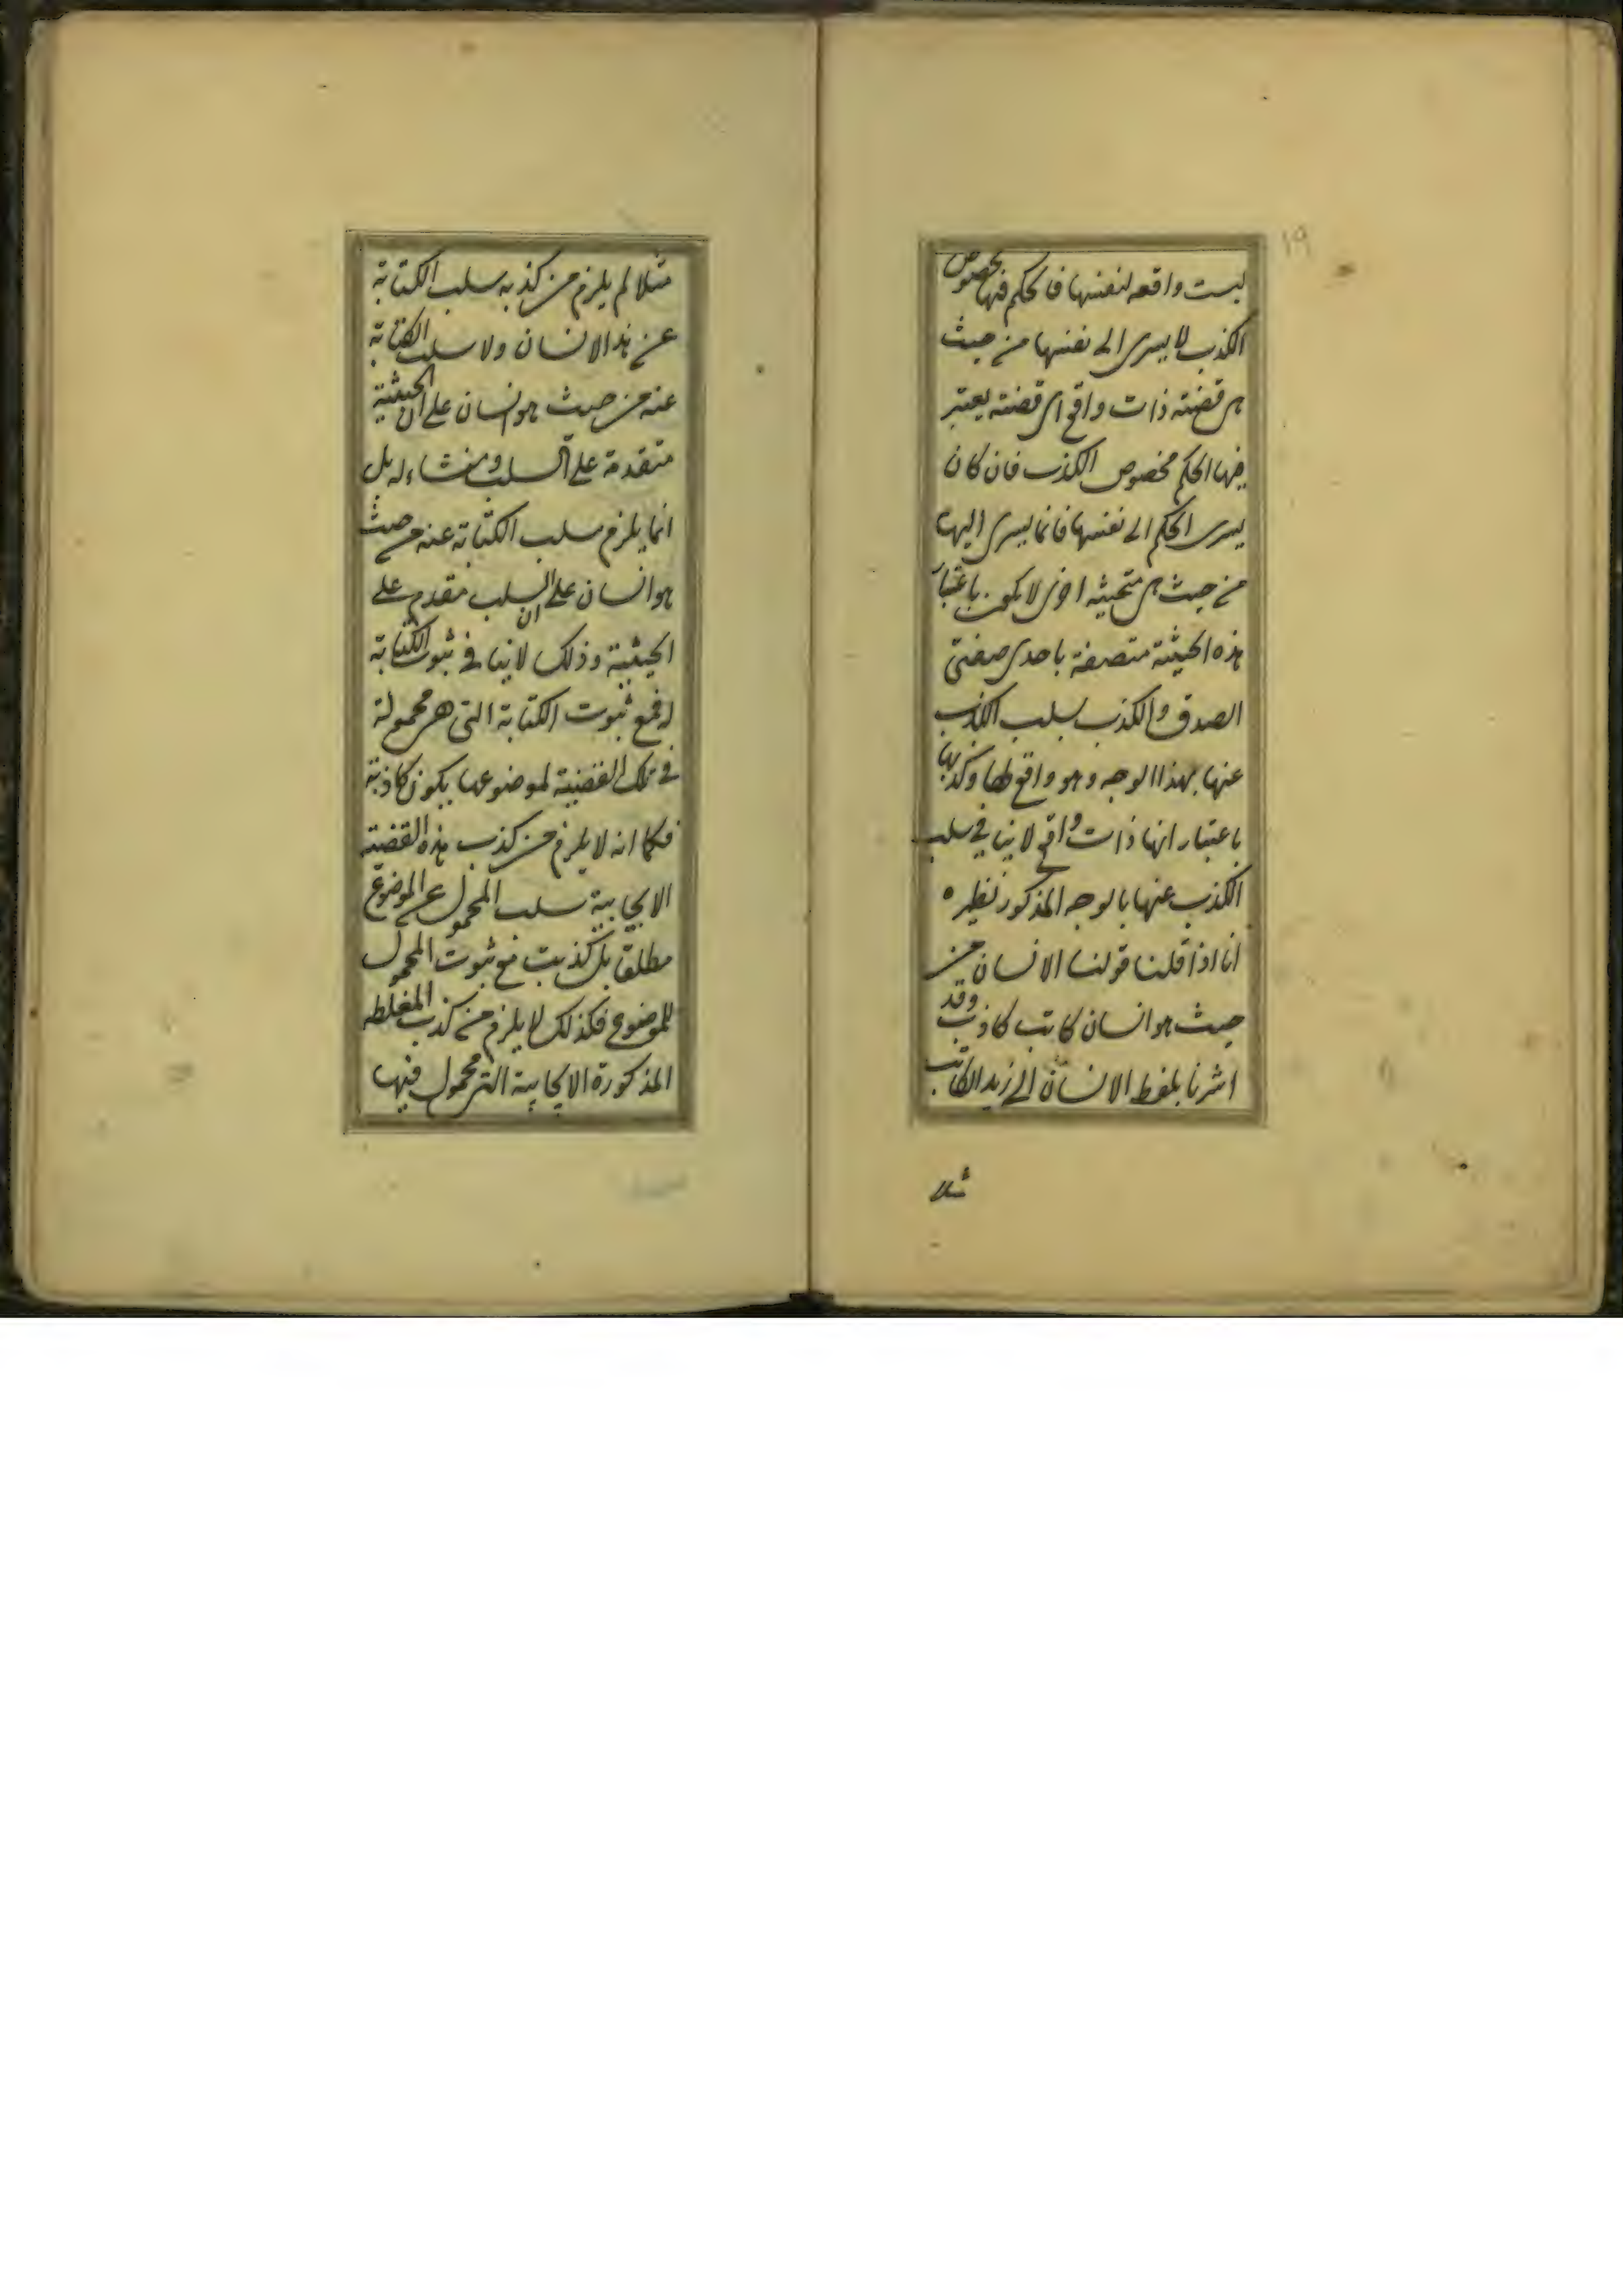 ١٩
ليست واقعه لنفسها فالحكم فيها بخصوص
الكذب لا يسرى الى نفسها من حيث
هى قضية ذات واقع اى قضية يعتبر
فيها الحكم بخصوص الكذب فان كان
يسرى الحكم الى نفسها فانما يسرى اليها
من حيث هى اخرى لا يكون باعتبار
هذه الحيثية متصفة باحدى صفتى
الصدق والكذب بسلب الكذب
عنها بهذا الوجه وهو واقع لها وكذبها
باعتبار انها ذات واقع لا ينافى سلب
الكذب عنها بالوجه المذكور نظيره
انا اذا قلنا قولنا الانسان من
حيث هو انسان كاتب كاذب وقد
اشرنا بلفظ الانسان الى زيد الكاتب
مثلا
مثلا لم يلزم من كذبه سلب الكتابة
عن هذا الانسان ولا سلب الكتابة
عنه من حيث هو انسان على ان الحيثية
متقدمة على السلب ومنشاء له بل
انما يلزم سلب الكتابة عنه من حيث
هو انسان على ان السلب مقدم على
الحيثية وذلك لا ينافى ثبوت الكتابة
له فمع ثبوت الكتابة التى هى محمولة
فى تلك القضية لموضوعها يكون كاذبة
فكما انه لا يلزم من كذب هذه القضية
الايجابية سلب المحمول عن الموضوع
مطلقا بل كذبت مع ثبوت المحمول
للموضوع فكذلك لا يلزم من كذب المغلطه
المذكورة الايجابية التى محمول فيها